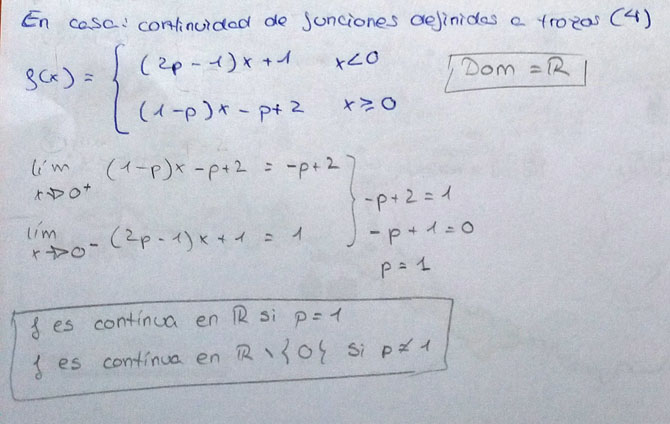 En casa: continuidad de funciones definidas a trozos (4)
f(x) = { (2p-1)x+1   x<0
(1-p)x-p+2   x≥0
Dom = ℝ
lím x→0⁺ (1-p)x-p+2 = -p+2
lím x→0⁻ (2p-1)x+1 = 1
-p+2=1
-p+1=0
p=1
f es contínua en ℝ si p=1
f es contínua en ℝ \ {0} si p≠1